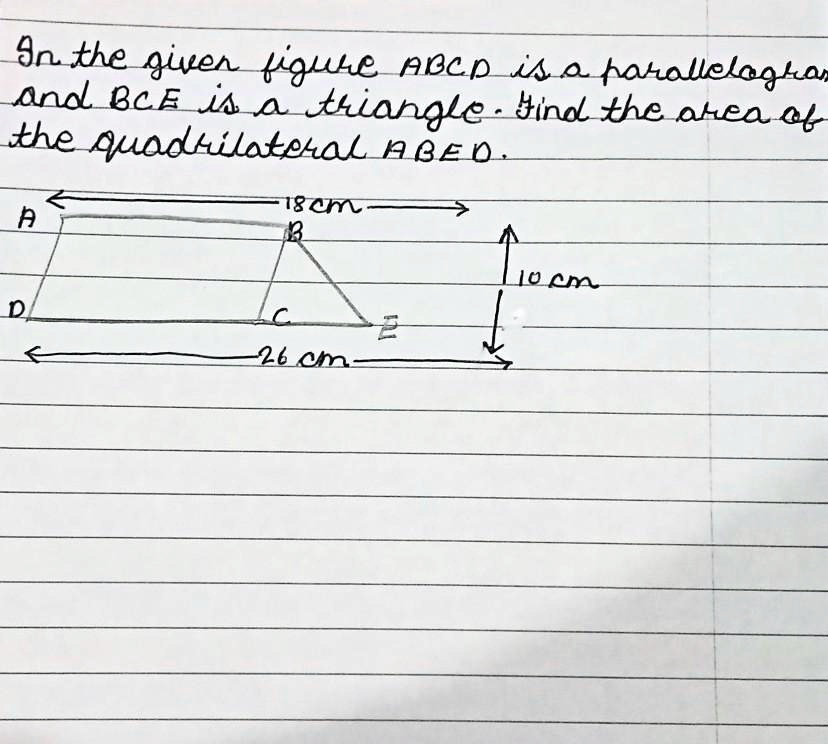 In the given figure ABCD is a parallelogram
and BCE is a triangle. Find the area of
the quadrilateral ABED.
18 cm
A
B
10 cm
D
C
E
26 cm